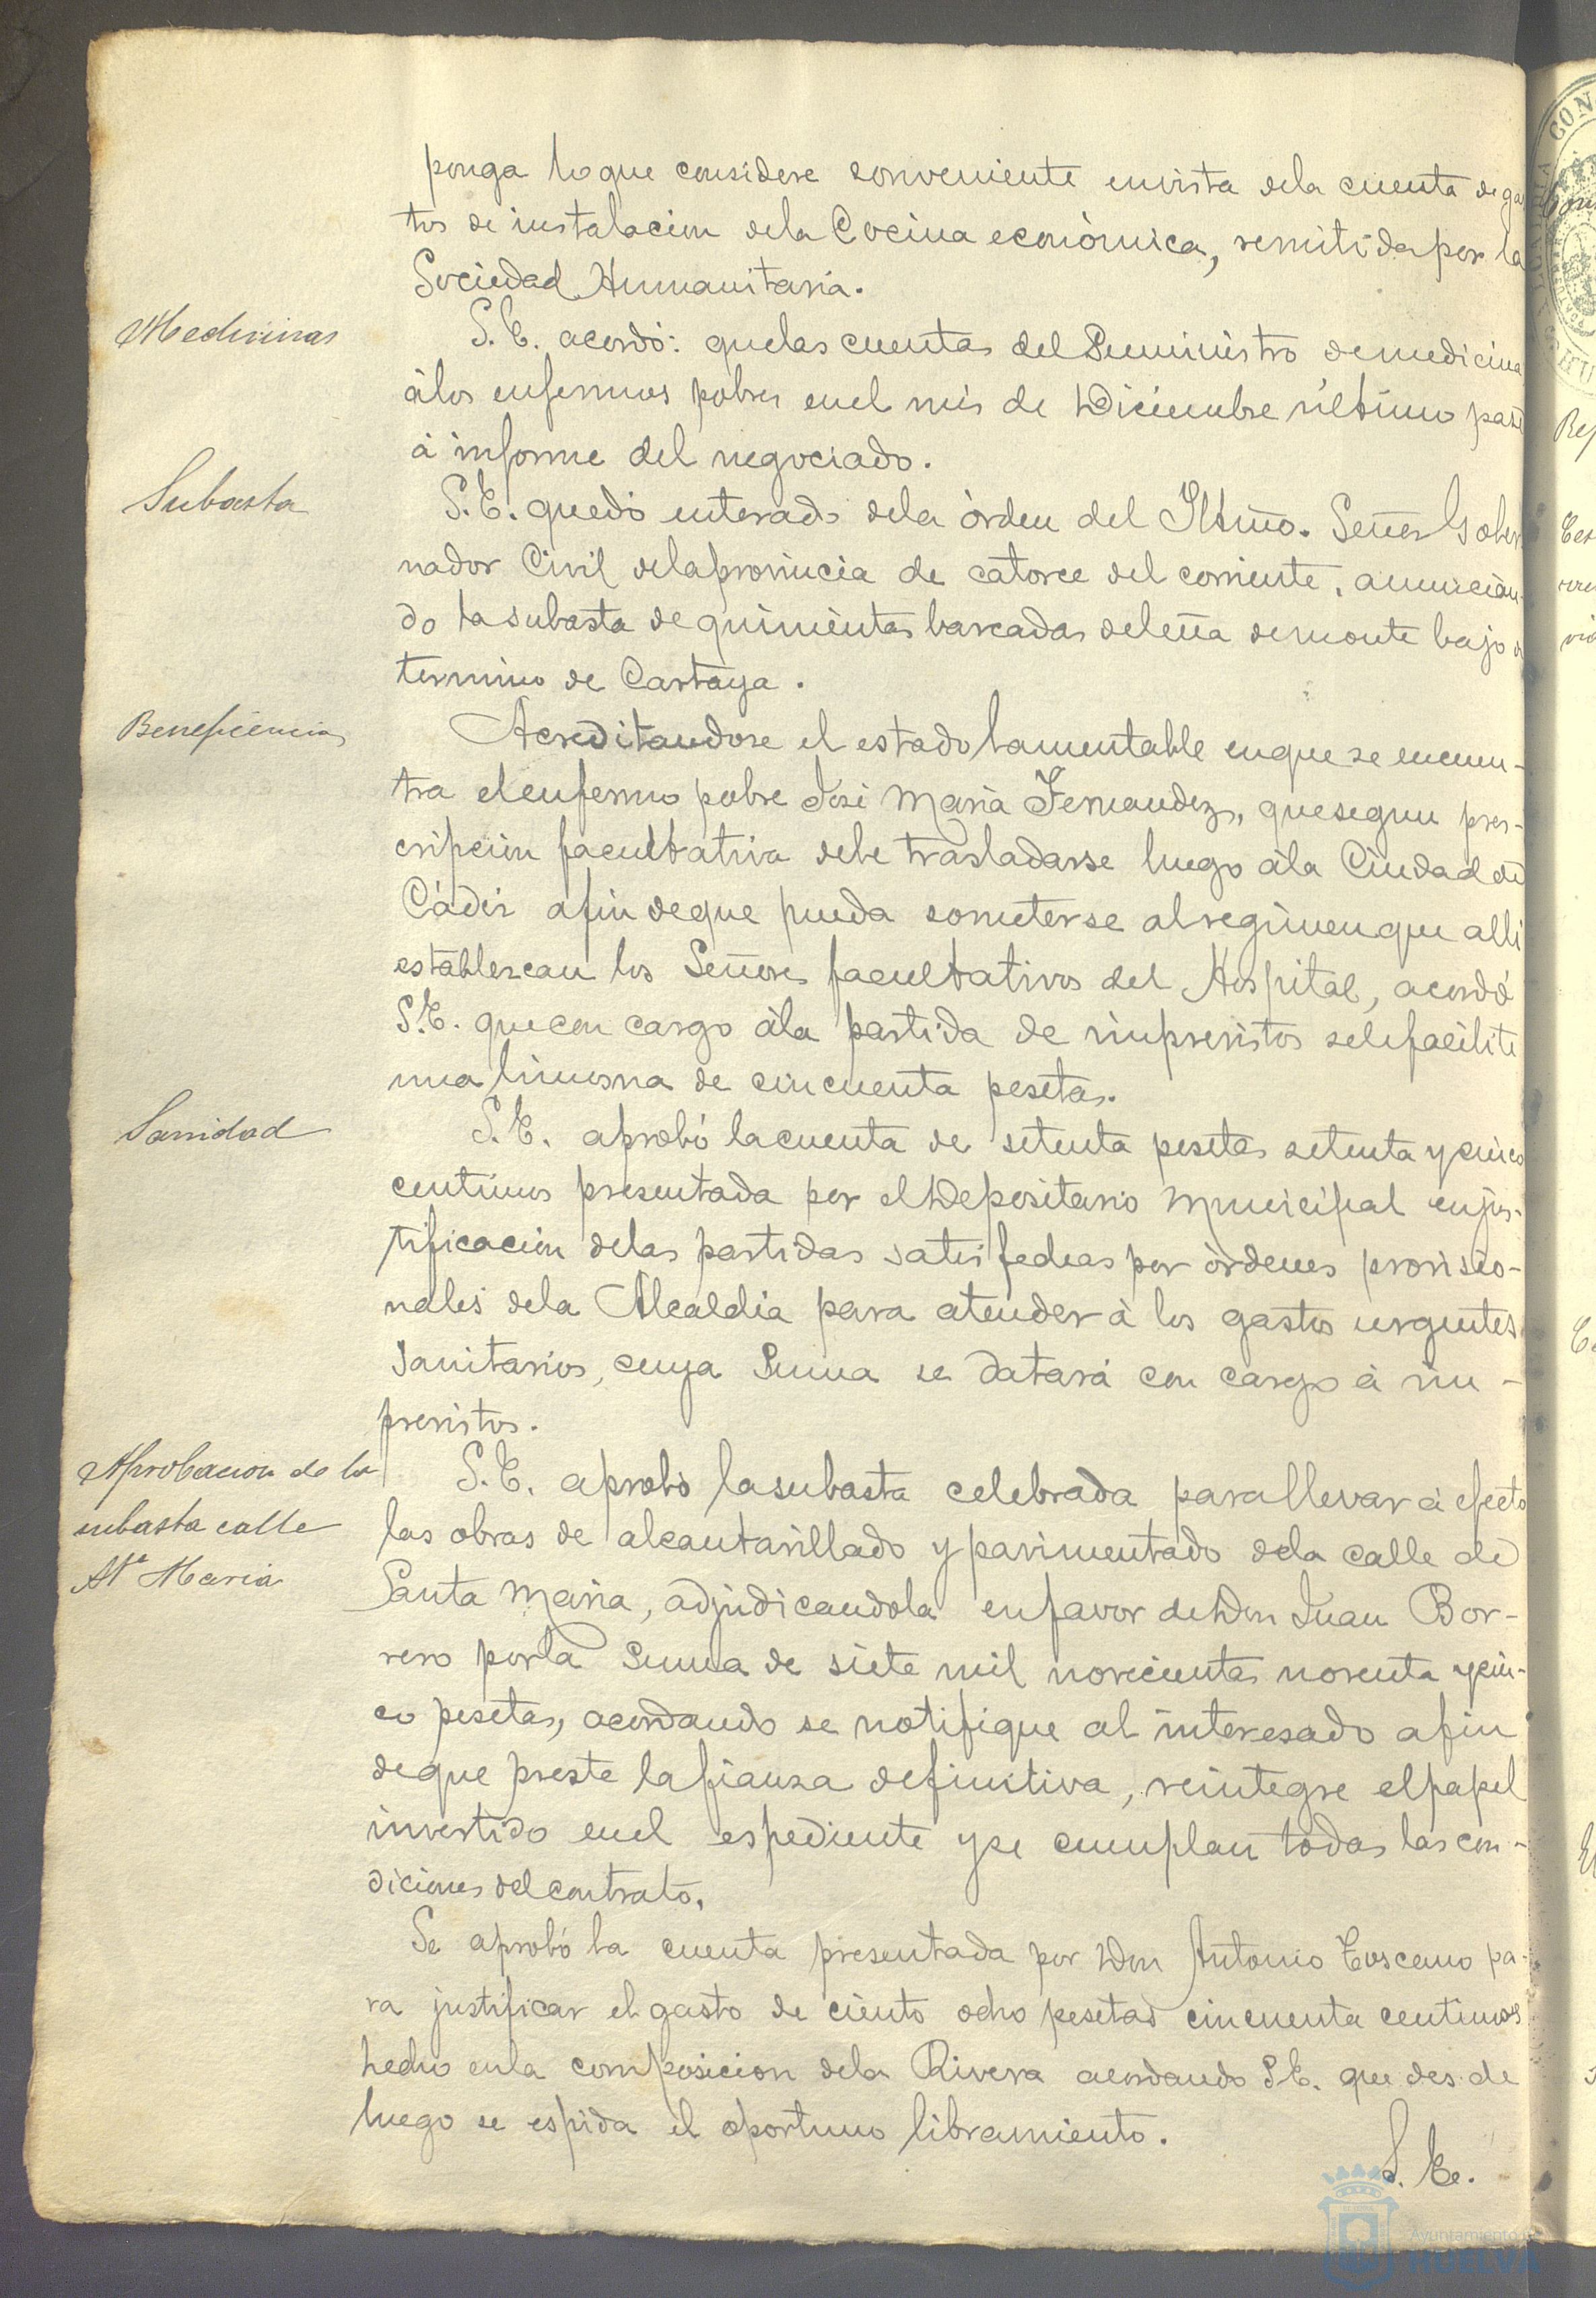 ponga lo que considere conveniente en vista dela cuenta de gas
tos de instalacion dela Cocina económica, remitida por la
Sociedad Humanitaria.
Medicinas
S. E. acordó: que las cuentas del Suministro de medicina
álos enfermos pobres en el mes de Diciembre último pase
á informe del negociado.
Subasta
S. E. quedó enterado dela órden del Iltmo. Señor Gober
nador Civil dela provincia de catorce del corriente, anuncian-
do la subasta de quinientas barcadas de leña de monte bajo
termino de Cartaya.
Beneficencia
Acreditandose el estado lamentable en que se encuen-
tra el enfermo pobre José Maria Fernandez, que segun pres-
cripcion facultativa debe trasladarse luego ála Ciudad de
Cádiz afin de que pueda someterse al regimen que alli
establezcan los Señores facultativos del Hospital, acordó
S. E. que con cargo ála partida de imprevistos se le facilite
una limosna de cincuenta pesetas.
Sanidad
S. E. aprobó la cuenta de setenta pesetas setenta y cinco
centimos presentada por el Depositario Municipal en jus-
tificacion delas partidas satisfechas por órdenes provisio-
nales dela Alcaldia para atender á los gastos urgentes
Sanitarios, cuya Suma se datará con cargo á im-
previstos.
Aprobacion de la
subasta calle
Sta Maria
S. E. aprobó la subasta celebrada para llevar á efecto
las obras de alcantarillado y pavimentado dela calle de
Santa Maria, adjudicandola en favor de Don Juan Bor-
rero por la Suma de siete mil novecientas noventa y cin-
co pesetas, acordando se notifique al interesado afin
de que preste la fianza definitiva, reintegre el papel
invertido en el espediente y se cumplan todas las con-
diciones del contrato.
Se aprobó la cuenta presentada por Don Antonio Toscano pa-
ra justificar el gasto de ciento ocho pesetas cincuenta centimos
hecho en la composicion dela Rivera acordando S. E. que desde
luego se espida el oportuno libramiento.
S. E.
Ayuntamiento de
HUELVA